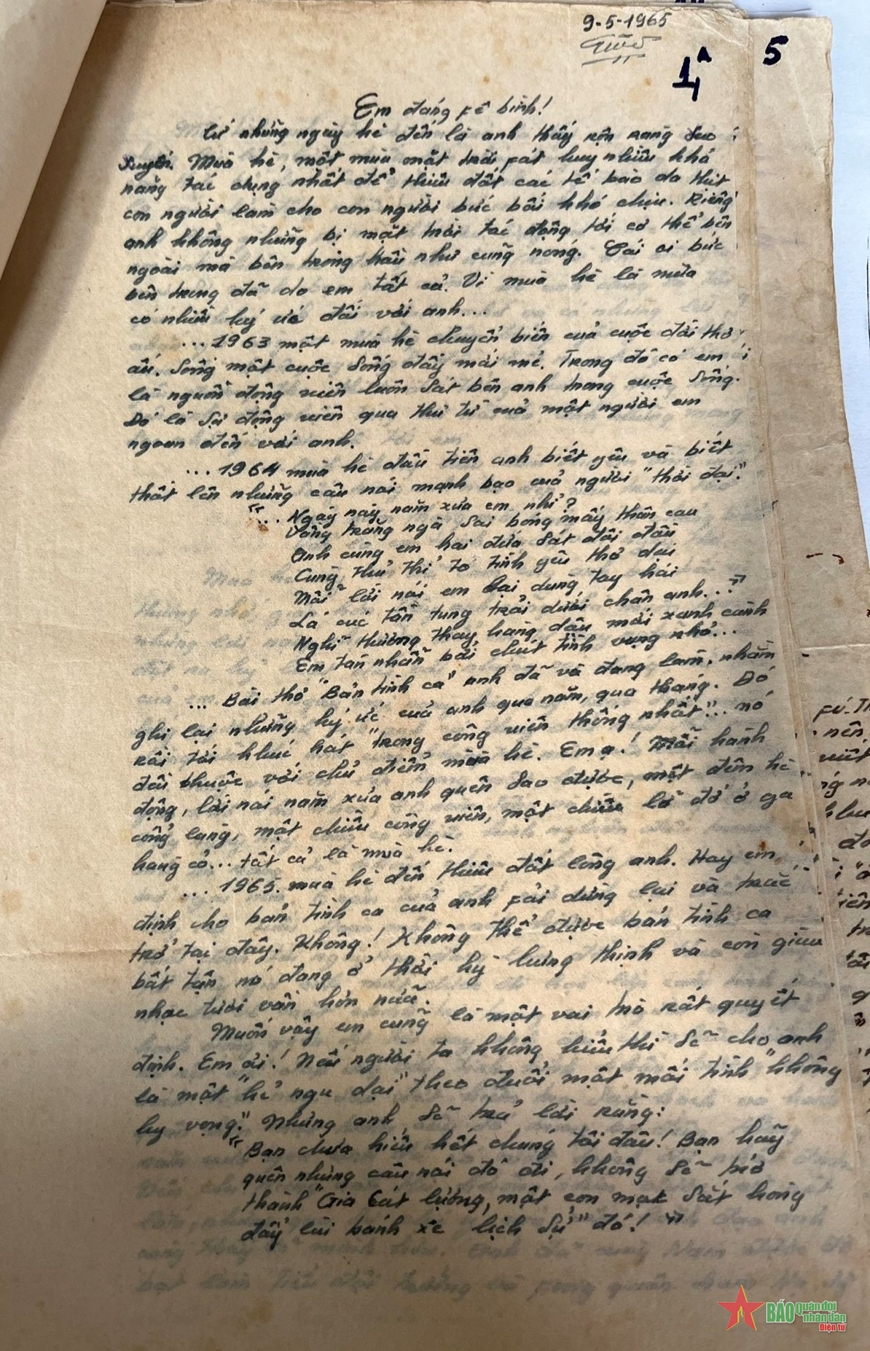 9-5-1965
1A
5
Em đáng fê bình!
Cứ những ngày hè đến là anh thấy rộn ràng xao
xuyến. Mùa hè, một mùa mặt trời fát huy nhiều khả
năng tác dụng nhất để thiêu đốt các tế bào da thịt
con người làm cho con người bức bối khó chịu. Riêng
anh không những bị mặt trời tác động tới cơ thể bên
ngoài mà bên trong hầu như cũng nóng. Cái oi bức
bên trong đã do em tất cả. Vì mùa hè là mùa
có nhiều ký ức đối với anh...
...1963 một mùa hè chuyển biến của cuộc đời thơ
ấu. Sống một cuộc sống đầy mới mẻ. Trong đó có em
là nguồn động viên luôn sát bên anh trong cuộc sống.
Đó là sự động viên qua thư từ của một người em
ngoan đến với anh.
...1964 mùa hè đầu tiên anh biết yêu và biết
thốt lên những câu nói mạnh bạo của người "thời đại".
"... Ngày này năm xưa em nhỉ?
Vầng trăng ngà sai bóng mấy thân cau
Anh cùng em hai đứa sát đôi đầu
Cùng thủ thỉ to tình yêu thơ dại
Mỗi lời nói em lại dùng tay hái
Lá cúc tần tung trải dưới chân anh...?"
Nghĩ thương thay hàng dậu mới xanh cành
Em tàn nhẫn bởi chút tình vụng nhỏ...
... Bài thơ "Bản tình ca" anh đã và đang làm, nhằm
ghi lại những ký ức của anh qua năm, qua tháng. Đó
rồi tới khúc hát "trong công viên thống nhất"... nó
đều thuộc với chủ điểm mùa hè. Em ạ! Mỗi hành
động, lời nói năm xưa anh quên sao được, một đêm hè
cổng làng, một chiều công viên, một chiều lỡ đò ở ga
hàng cỏ... tất cả là mùa hè.
...1965. mùa hè đến thiêu đốt lòng anh. Hay em
định cho bản tình ca của anh fải dừng lại và trắc
trở tại đây. Không! Không thể được bản tình ca
bất tận nó đang ở thời kỳ hưng thịnh và còn giàu
nhạc tươi vần hơn nữa.
Muốn vậy em cũng là một vai trò rất quyết
định. Em ơi! Nếu người ta không hiểu thì sẽ cho anh
là một "kẻ ngu dại" theo đuổi một mối tình "không
hy vọng". Nhưng anh sẽ trả lời rằng:
"Bạn chưa hiểu hết chúng tôi đâu! Bạn hãy
quên những câu nói đó đi, không sẽ trở
thành "Gia Cát lượng, một con mạt sắt hòng
đẩy lùi bánh xe lịch sử" đó!"
BÁO quân đội nhân dân Điện tử